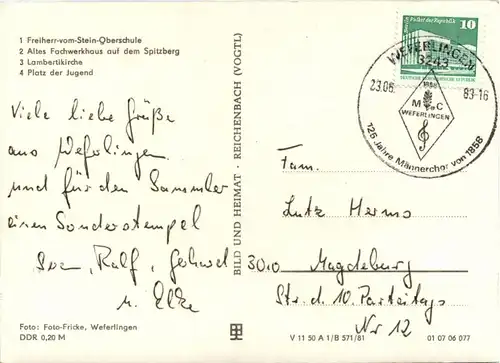 1 Freiherr-vom-Stein-Oberschule
2 Altes Fachwerkhaus auf dem Spitzberg
3 Lambertikirche
4 Platz der Jugend
Viele liebe Grüße
aus Weferlingen
und für den Sammler
einen Sonderstempel
Ralf,
u. Elke
Foto: Foto-Fricke, Weferlingen
DDR 0,20 M
BILD UND HEIMAT · REICHENBACH (VOGTL)
10
Palast der Republik
WEFERLINGEN
3243
23.06 83-16
1858
M C
WEFERLINGEN
125 Jahre Männerchor von 1858
Fam.
Lutz Herms
3010 Magdeburg
Str. d. 10. Parteitags
Nr 12
V 11 50 A 1/B 571/81
01 07 06 077